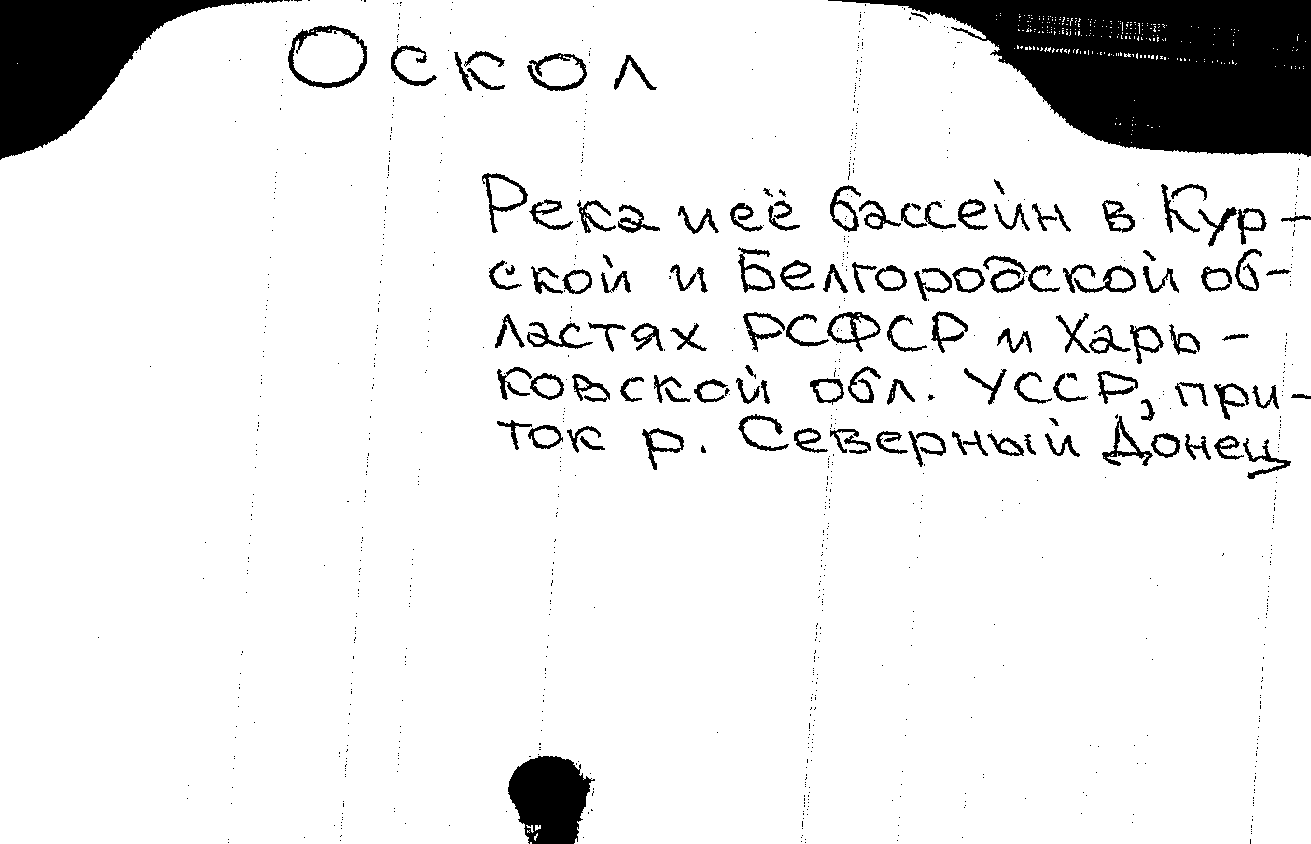 Оскол
Река и её бассейн в Кур-
ской и Белгородской об-
ластях РСФСР и Харь-
ковской обл. УССР, при-
ток р. Северный Донец